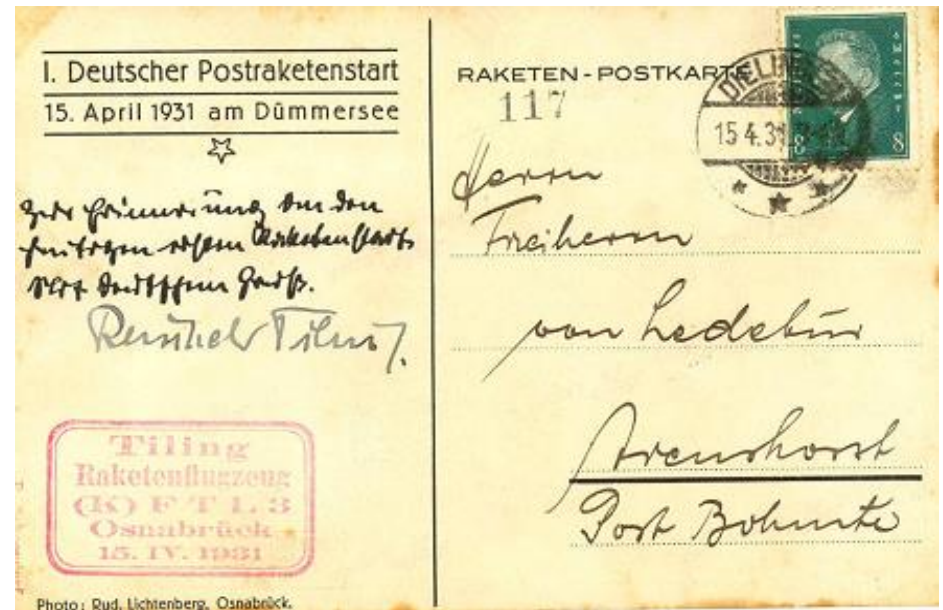 I. Deutscher Postraketenstart
15. April 1931 am Dümmersee
Zur Erinnerung an den
heutigen ersten Raketenstart.
Mit deutschem Gruß.
Reinhold Tiling.
Tiling
Raketenflugzeug
(K) F T L 3
Osnabrück
15. IV. 1931
Photo: Rud. Lichtenberg, Osnabrück.
RAKETEN - POSTKARTE
117
DIELINGEN
15 4.31
8 8
Herrn
Freiherrn
von Ledebur
Arenshorst
Post Bohmte